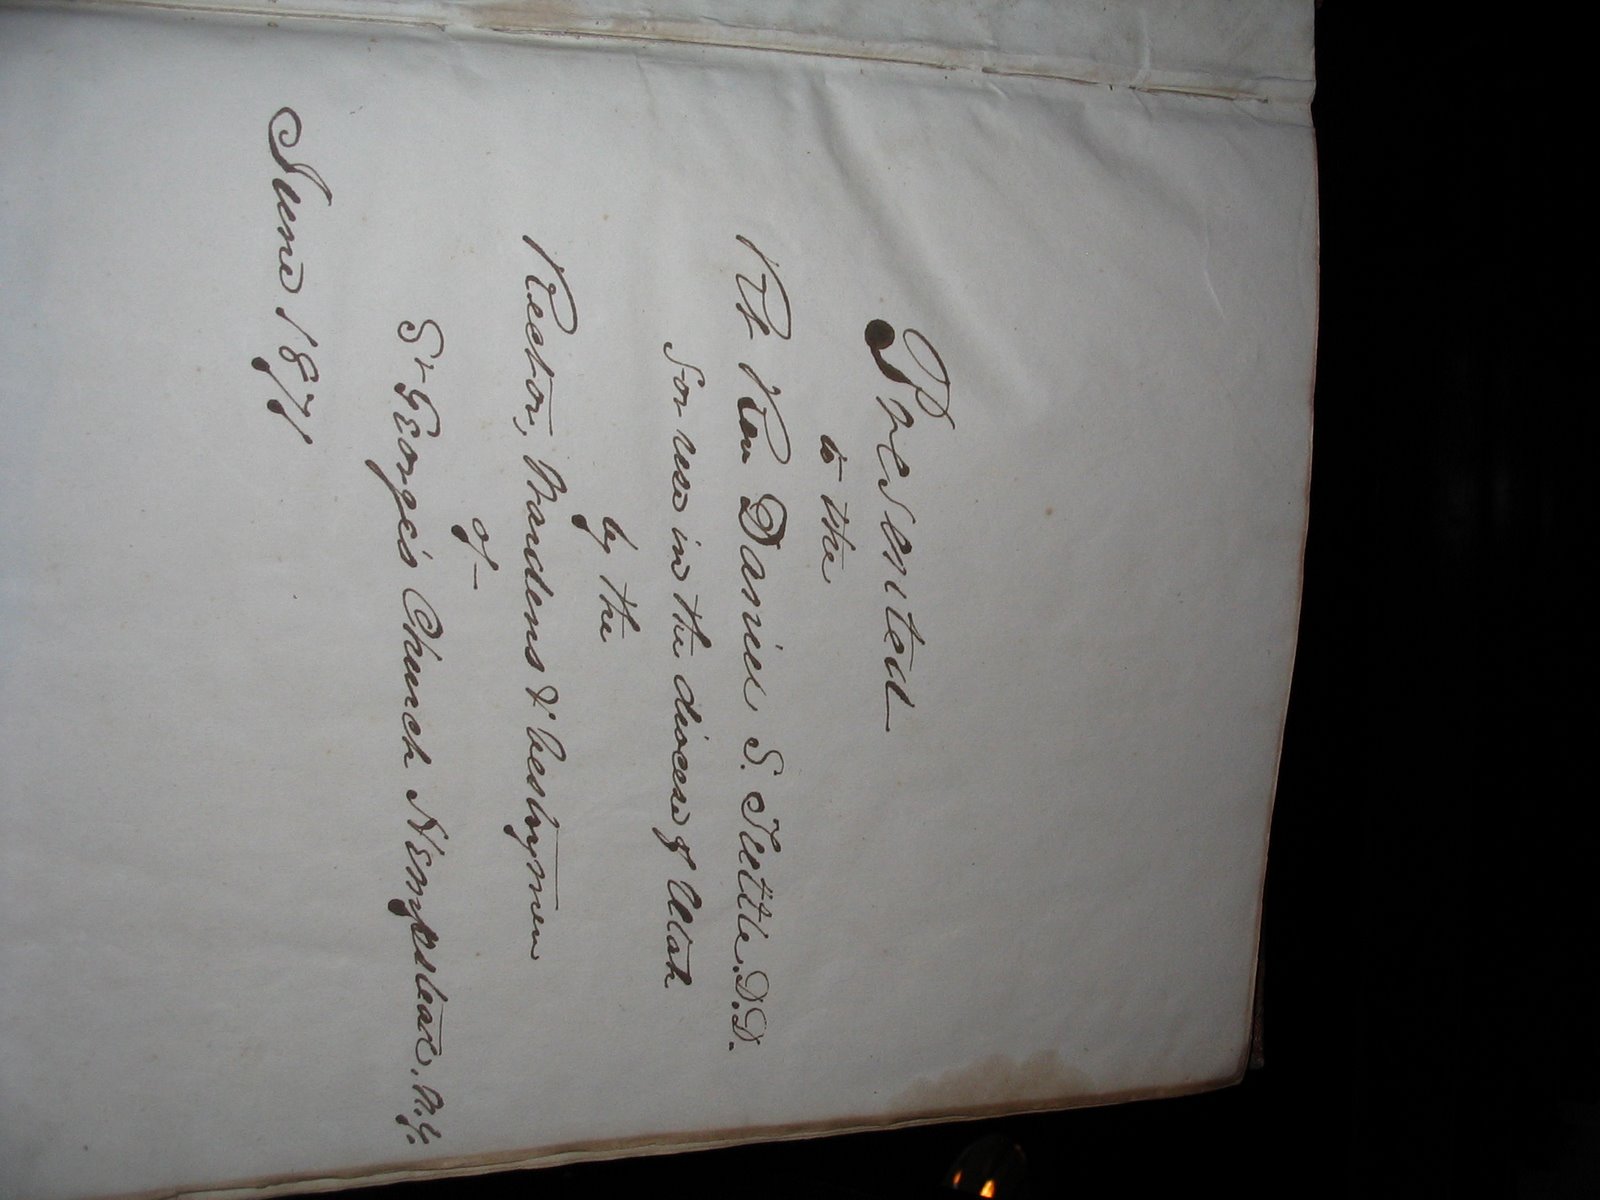 Presented
to the
Rt Rev Daniel S. Tuttle. D.D.
for use in the diocese of Utah
by the
Rector, Wardens & Vestrymen
of
St George's Church Hempstead. N.Y.
June 1871